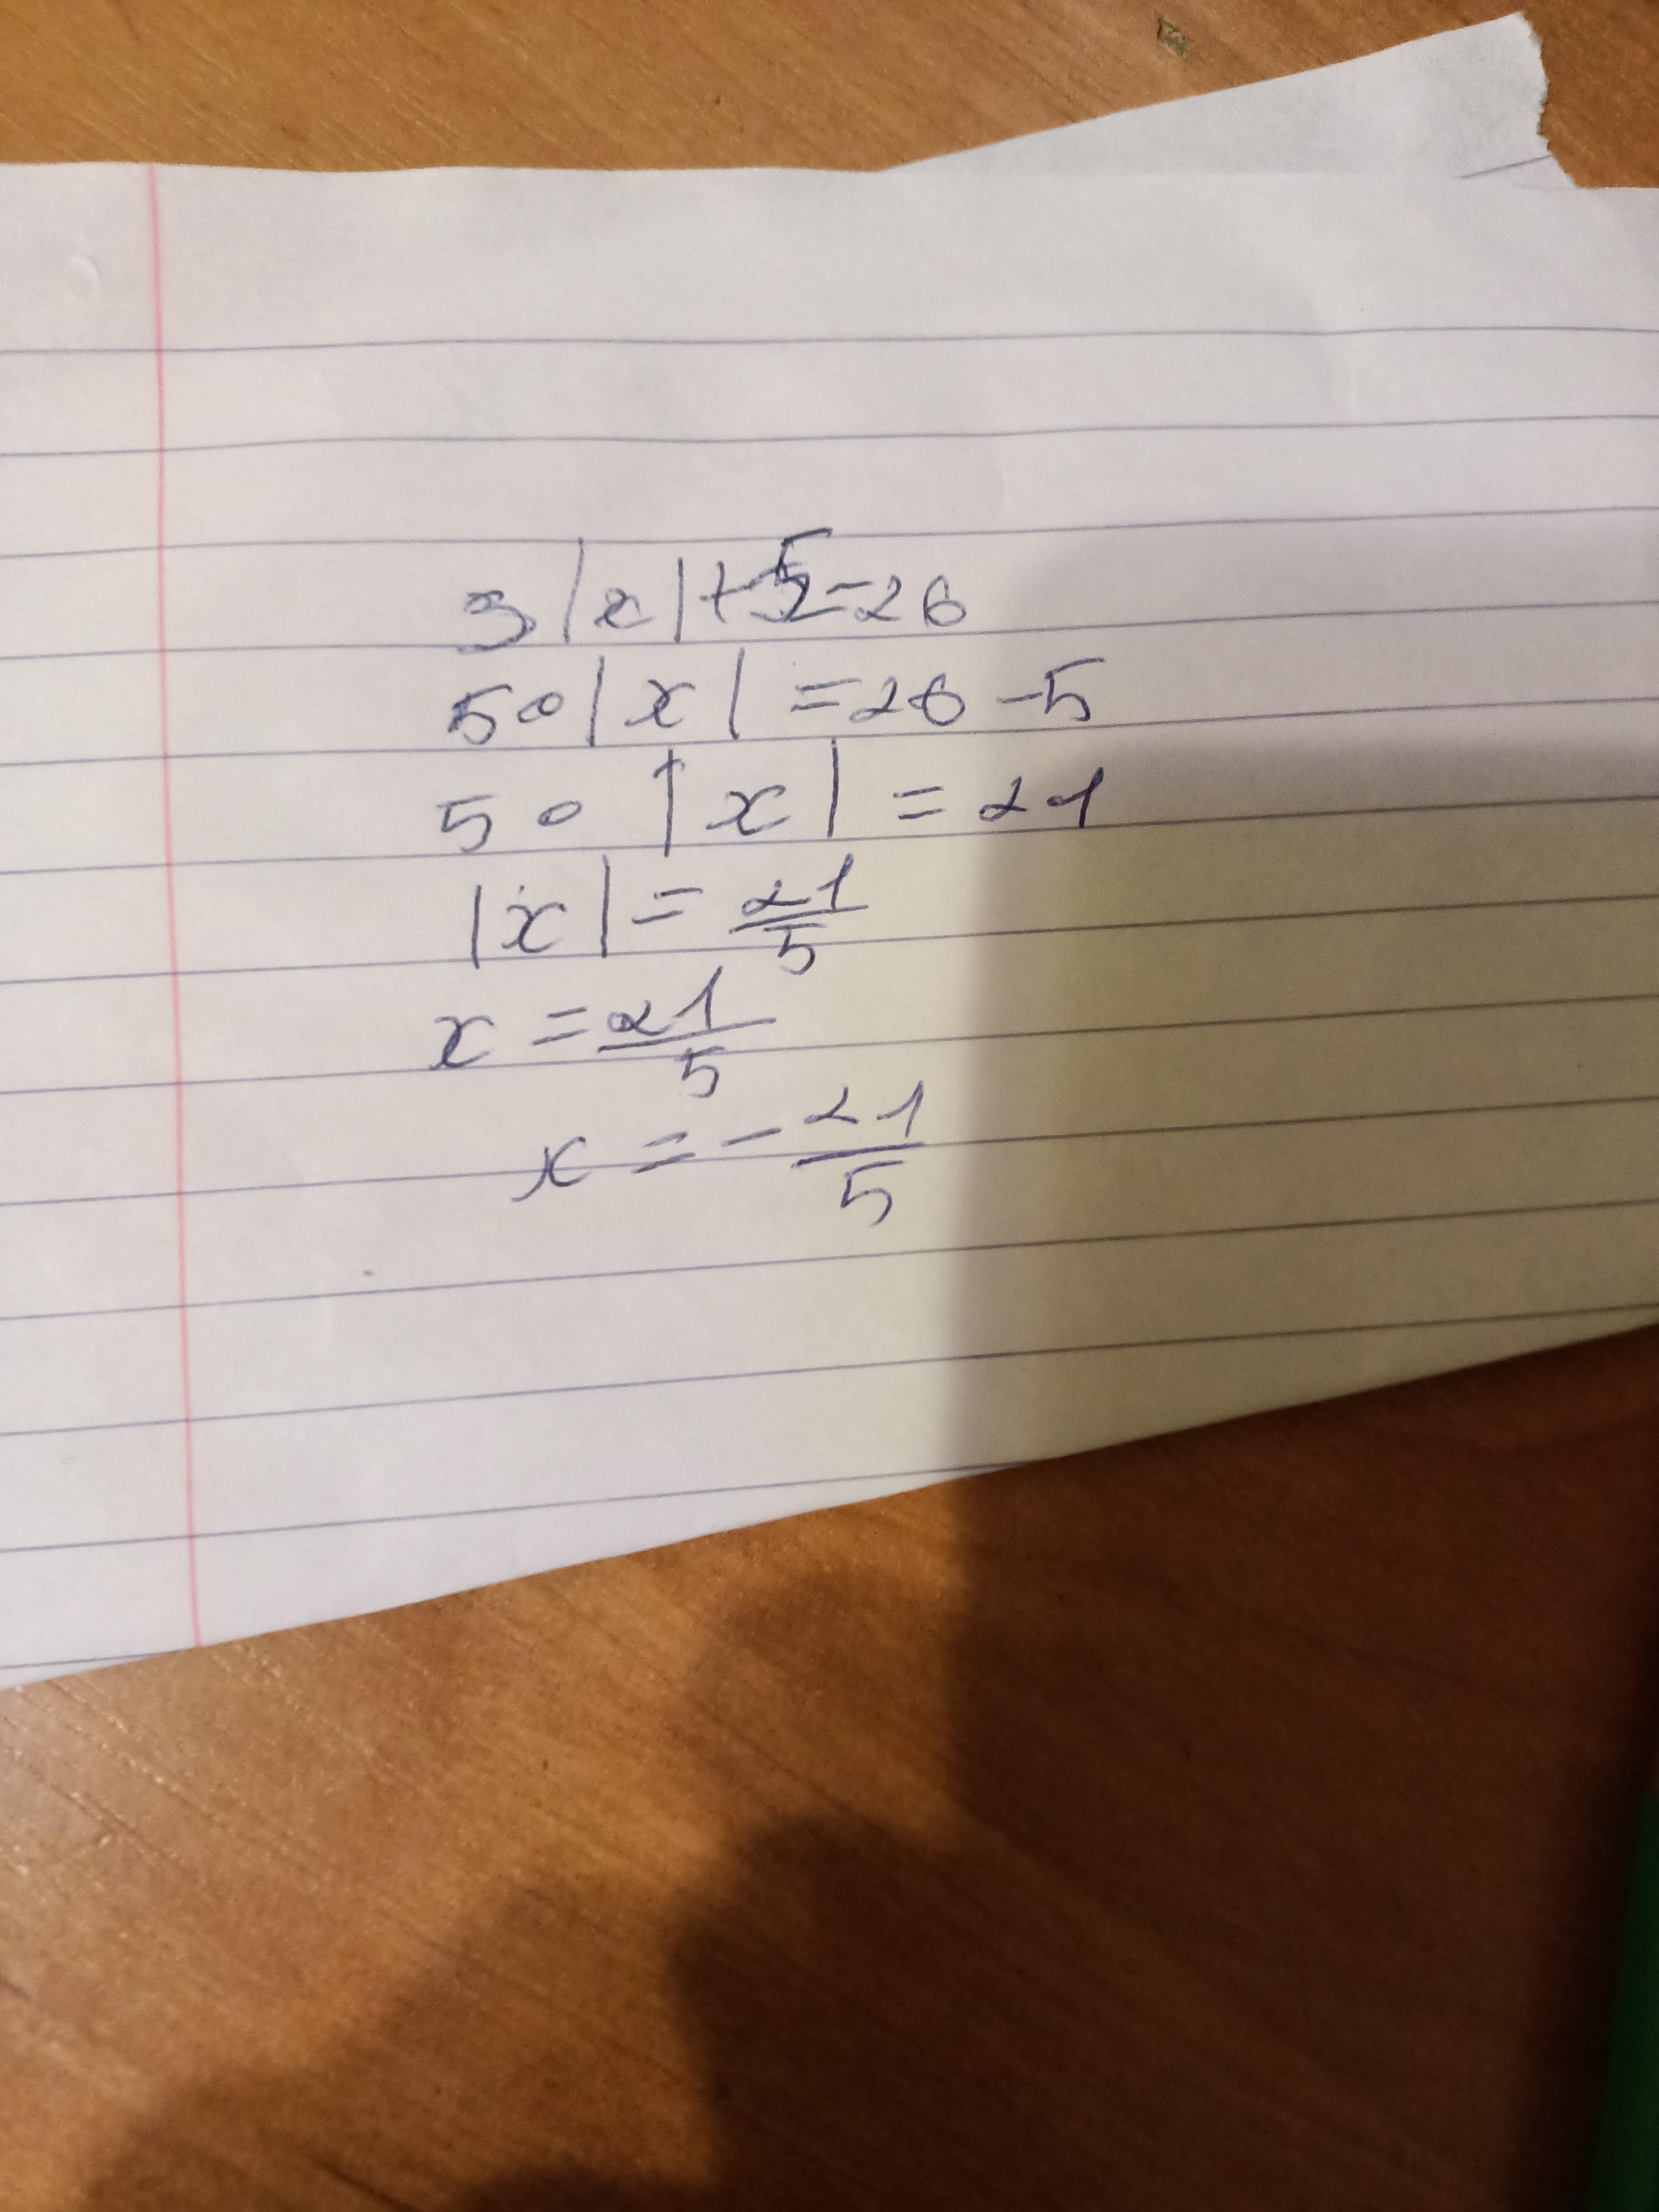 3|x|+5=26
5∘|x|=26-5
5∘|x|=21
|x|=21/5
x=21/5
x=-21/5